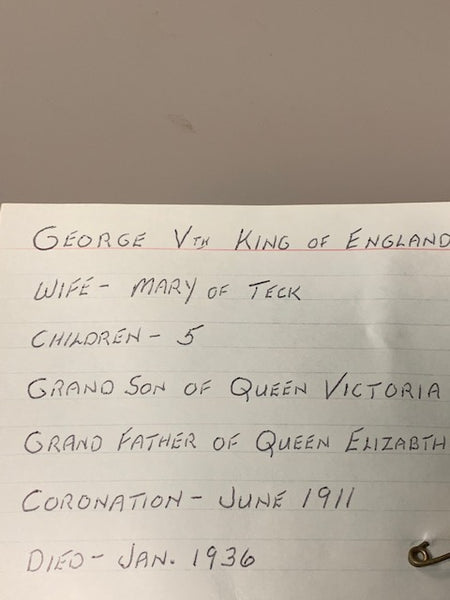 GEORGE VTH KING OF ENGLAND
WIFE - MARY OF TECK
CHILDREN - 5
GRAND SON OF QUEEN VICTORIA
GRAND FATHER OF QUEEN ELIZABTH
CORONATION - JUNE 1911
DIED - JAN. 1936